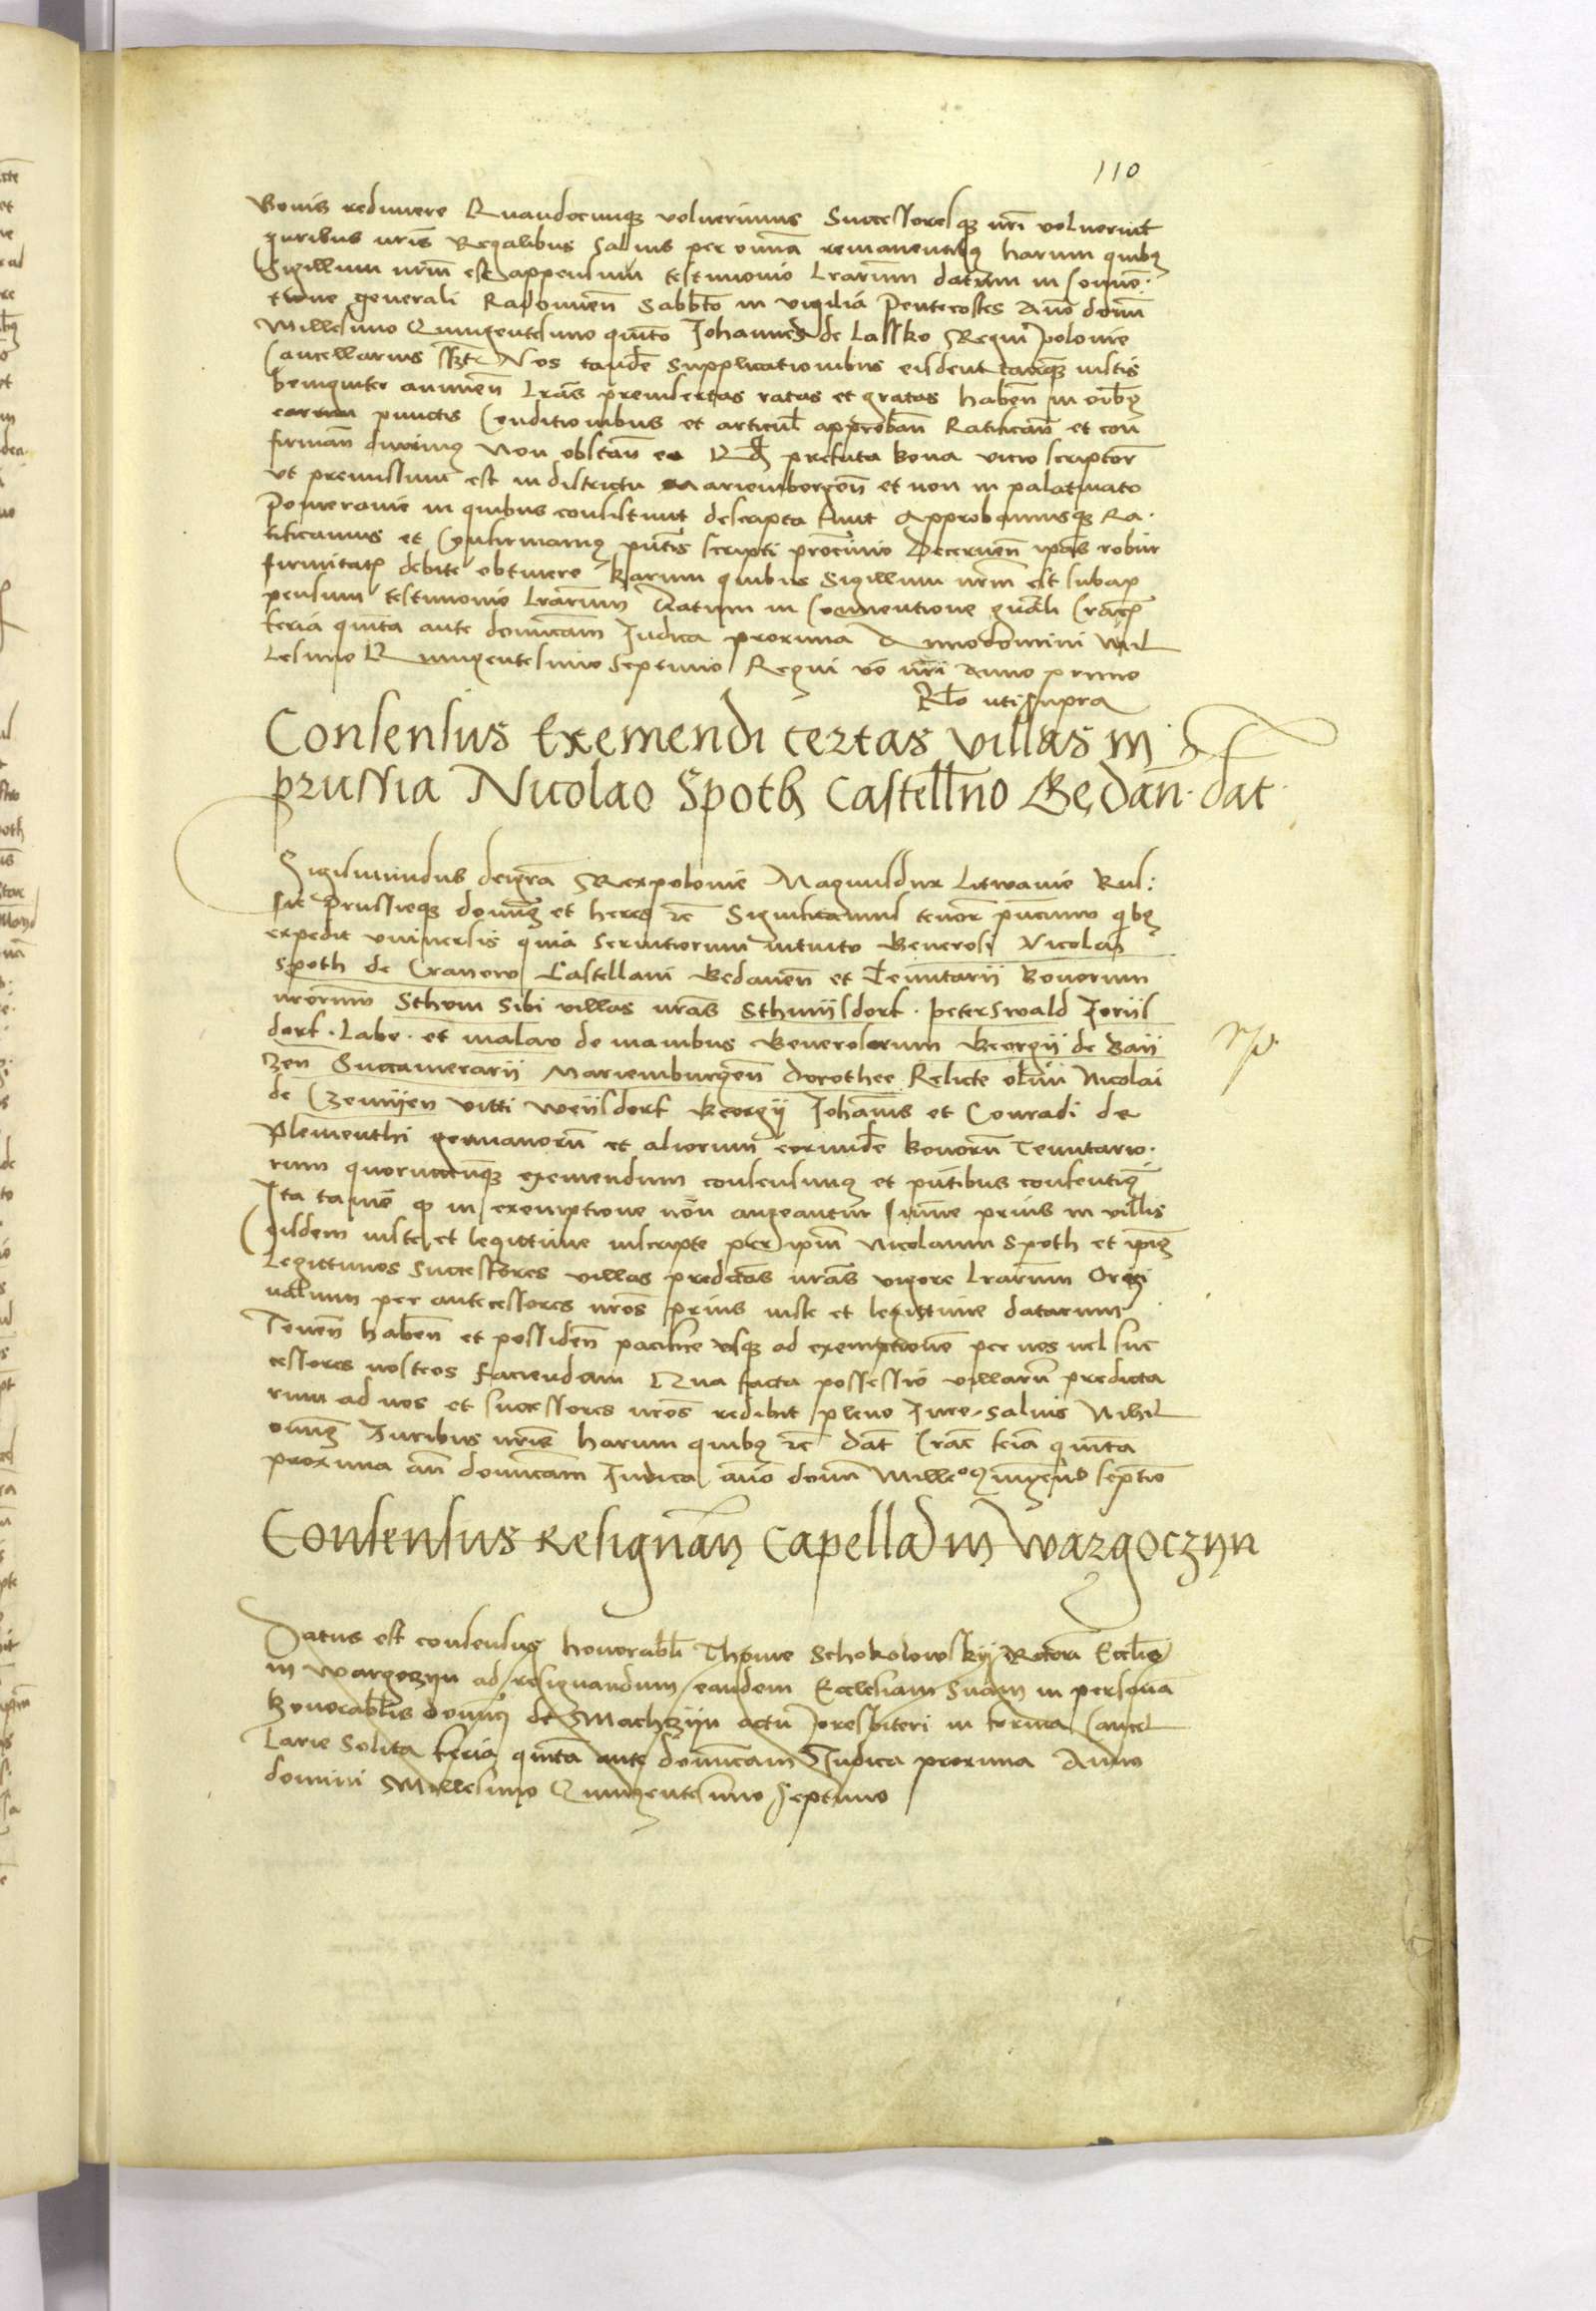 110
Bonis redimere Quandocunque voluerimus Successoresque nri voluerint
Iuribus nris Regalibus Salvis per omnia remanentibus harum quibus
Sigillum nrm est appensum testimonio Lrarum datum in Conven:
tione generali Radomien Sabbto in vigilia Pentecostes Anno domini
Millesimo Quingentesimo quinto Johannes de Lassko Regni Polonie
Cancellarius sszt Nos tande Supplicationibus eisdem tanquam iustis
benigniter annuen Lras preinsertas ratas et gratas haben in oibus
earum punctis Conditionibus et articul approban Ratifican et con
firman duximus Non obstan eo Quod prefata bona vicio scriptor
ut premissum est in districtu Mariemborgen et non in palatinato
Pomeranie in quibus consistunt descripta sunt Approbamusque Ra-
tificamus et Confirmamus pntis scripti procinio Decernen ipas robur
firmitatis debite obtinere harum quibus Sigillum nrm est subap
pensum testimonio Lrarum Datum in Conventione gnali Crac
feria quinta ante dominicam Iudica proxima Anno domini Mil
lesimo Quingentesimo Septimo Regni vo nri Anno primo
Rlo uti supra
Consensus Exemendi certas villas in
prussia Nicolao Spoth Castellno Gedan. dat
Sigismundus dei gra Rex polonie Magnus dux Litwanie Rus:
sie Prussieque dominus et heres zc Significamus tenor pntium qbus
expedit universis quia Servitiorum intuito Generosi Nicolai
Spoth de Cranow Castellani Gedanen et Tenutarii Bonorum
nrorum Sthum Sibi villas nras Sthuijsdorf. peterswald Joriis
dorf. Labe. et malaw de manibus Generosorum Georgii de Baij
zen Succamerarii Mariemburgen Dorothee Relicte olim Nicolai
de Czemijen Vitti Weijsdorf Georgij Johannis et Conradi de
Plementhi germanorum et aliorum eorunde bonorum Tenutario-
rum quorumcunque exemendum consensimus et pntibus consentimus
Ita tame quod in exemptione non augeantur Summe prius in villis
eisdem iuste et legittime inscripte per ipm Nicolaum Spoth et ipius
Legittimos Successores villas predictas nras vigore Lrarum Origi
nalium per antecessores nros prius iuste et legittime datarum
Tenen haben et possiden pacifice usque ad exemptione per nos vel suc
cessores nostros faciendam Qua facta possessio villarum predicta
rum ad nos et successores nros redibit pleno Iure. salvis Nihil
ominus Iuribus nris harum quibus zc dat Crac feria quinta
proxima an dominicam Iudica anno domi Millo Quingento septimo
Consensus Resignan Capella in Wargoczyn
Datus est consensus honorabli Thome Schokolowskij Rectori Ecclesie
in Wargoczyn ad resignandum eandem Ecclesiam Suam in persona
honorabilis dominici de Machczijn actu presbiteri in forma Cancel
Larie Solita feria quinta ante dominicam Iudica proxima Anno
domini Millesimo Quingentesimo Septimo